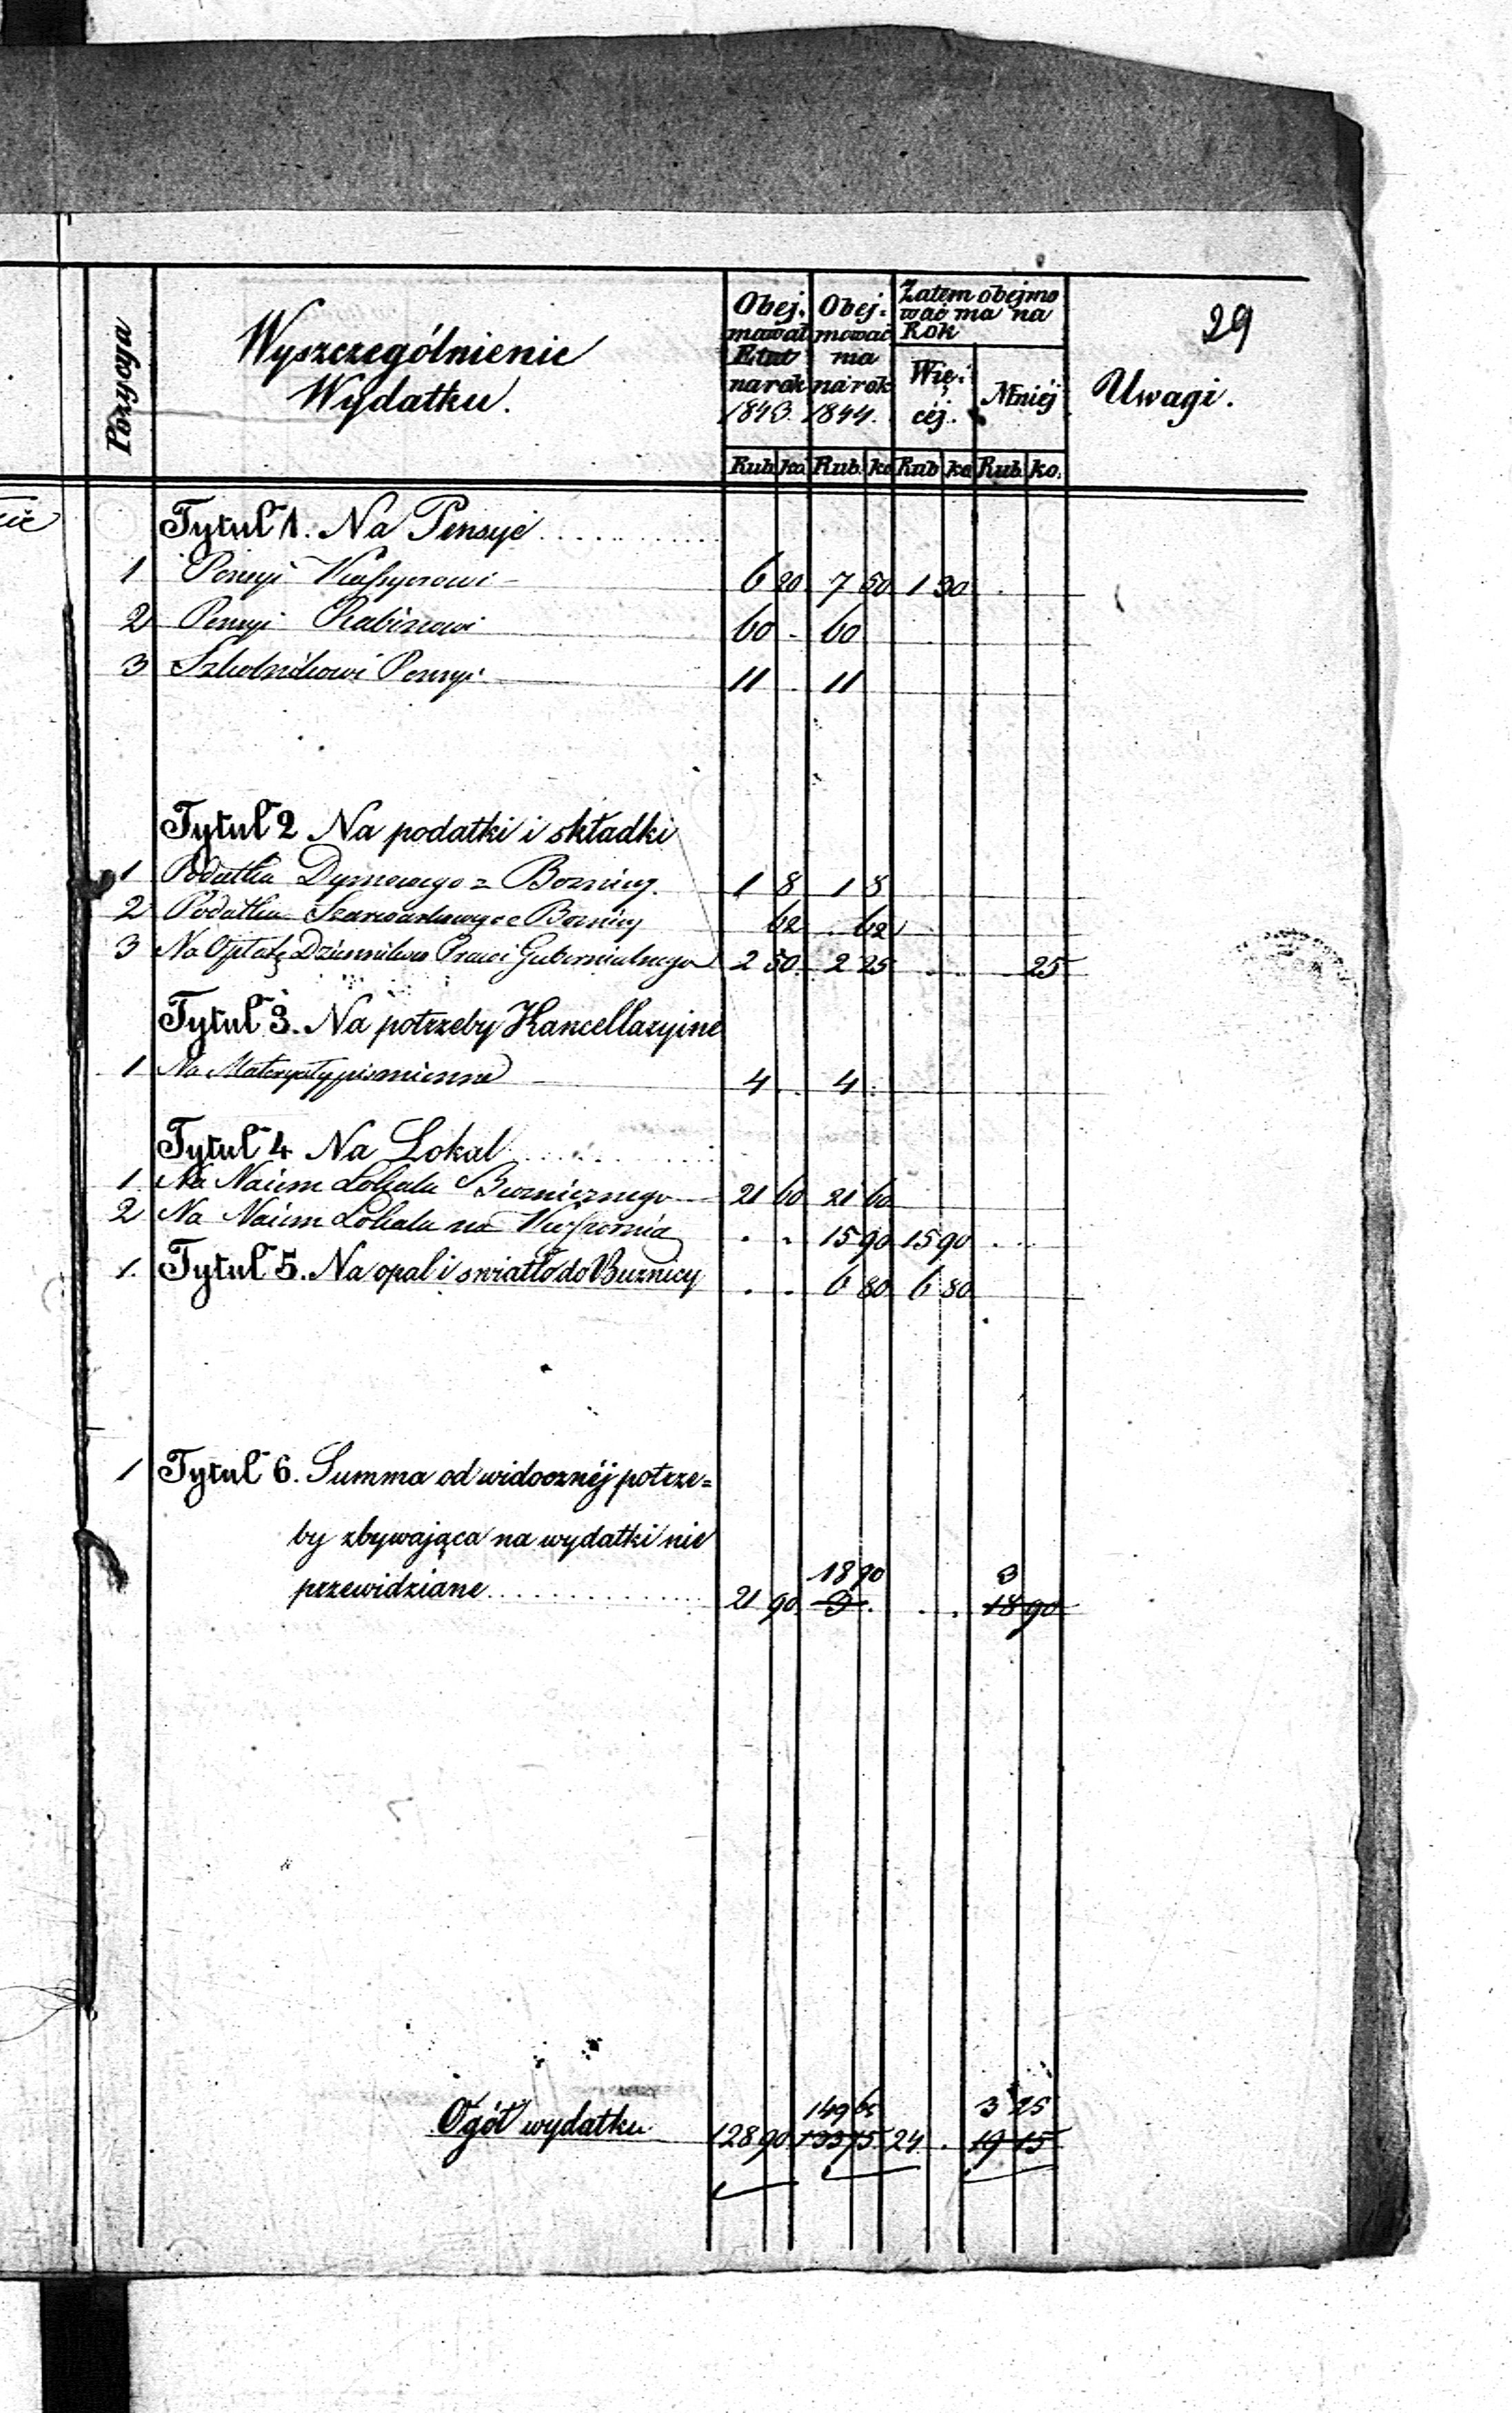 29
Pozycja
Wyszczególnienie
Wydatku.
Obej-
mował
Etat
na rok
1843.
Obej-
mować
ma
na rok
1844.
Zatem obejmo
wać ma na
Rok
Wię-
céj.
Mniéj
Uwagi.
Rub. ko. Rub. ko Rub ko Rub. ko.
Tytuł 1. Na Pensye
1 Pensyi Kassyerowi 6 20 7 50 1 30
2 Pensyi Rabinowi 60 - 60
3 Szkolnikowi Pensyi 11 . 11
Tytuł 2 Na podatki i składki
1 Podatku Dymowego z Boznicy. 1 8 1 8
2 Podatku Szarwarkowego z Boznicy 62 . 62
3 Na Opłatę Dziennika Gubernialnego 2 50 2 25 25
Tytuł 3. Na potrzeby Kancellaryine
1 Na Materyały pismienne 4 . 4 .
Tytuł 4 Na Lokal
1. Na Naiem Lokalu Buznicznego 21 60 21 60
2 Na Naiem Lokalu na . . 15 90 15 90 . .
1. Tytuł 5. Na opal i swiatło do Buznicy . . 6 80 6 80
1 Tytuł 6. Summa od widocznéj potrze=
by zbywająca na wydatki nie
18 90 3
przewidziane 21 90 3 . . . 18 90
149 65 3 25
Ogół wydatku 128 90 133 75 24 . 19 15